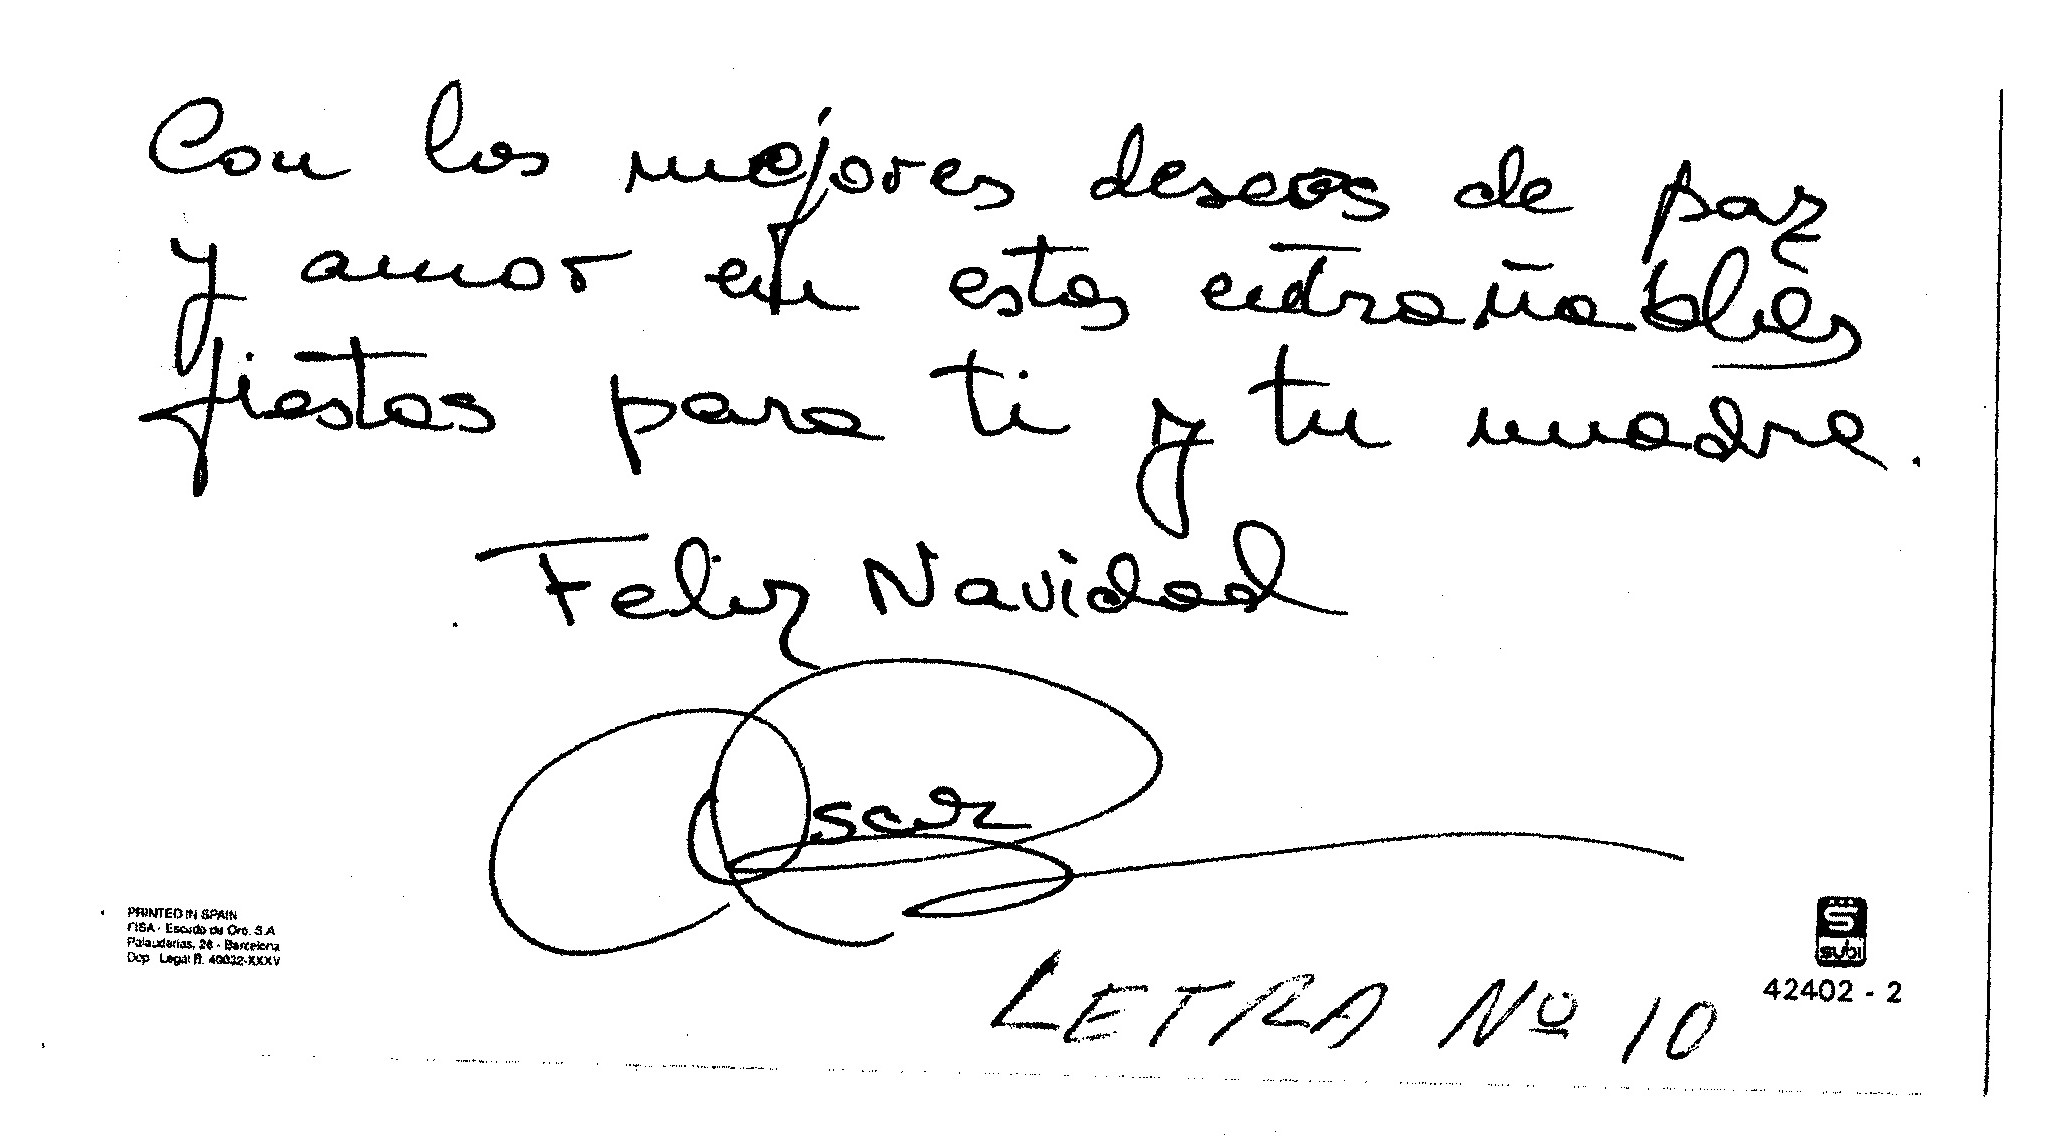 Con los mejores deseos de paz
y amor en estas entrañables
fiestas para ti y tu madre.
Feliz Navidad
Oscar
PRINTED IN SPAIN
FISA - Escudo de Oro, S.A.
Palaudarias, 26 - Barcelona
Dep. Legal B. 40032-XXXV
subi
42402 - 2
LETRA Nº 10